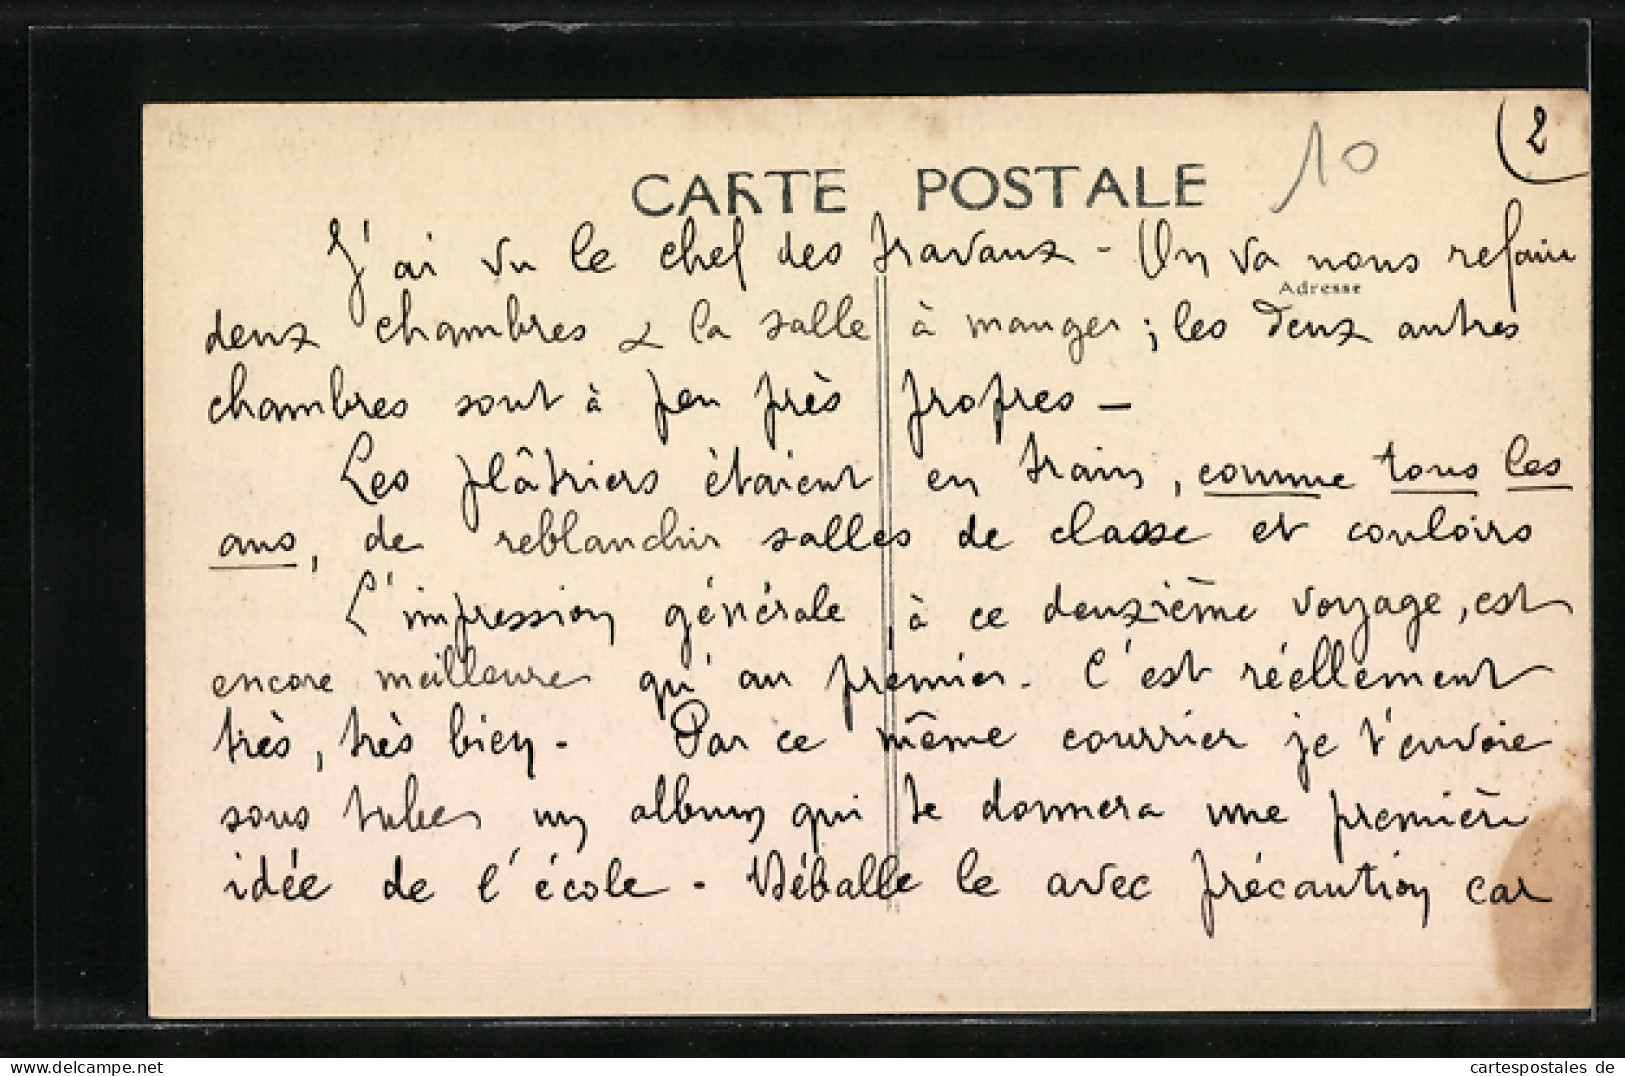 2
10
CARTE POSTALE
J'ai vu le chef des travaux - On va nous refaire
Adresse
deux chambres & la salle à manger ; les deux autres
chambres sont à peu près propres -
Les plâtriers étaient en train, comme tous les
ans, de reblanchir salles de classe et couloirs
L'impression générale, à ce deuxième voyage, est
encore meilleure qu'au premier. C'est réellement
très, très bien - Par ce même courrier je t'envoie
sous tube un album qui te donnera une première
idée de l'école - Déballe le avec précaution car
cartespostales de